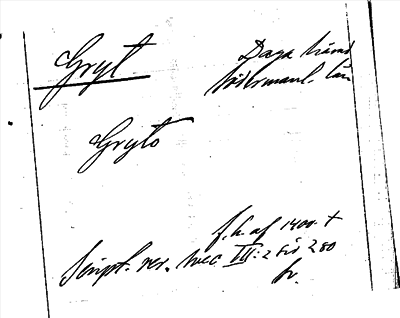 Gryt. Daga härad
Södermanl. län
Gryto
f. h. af 1400-t
Script. rer. svec III: 2 sid 280